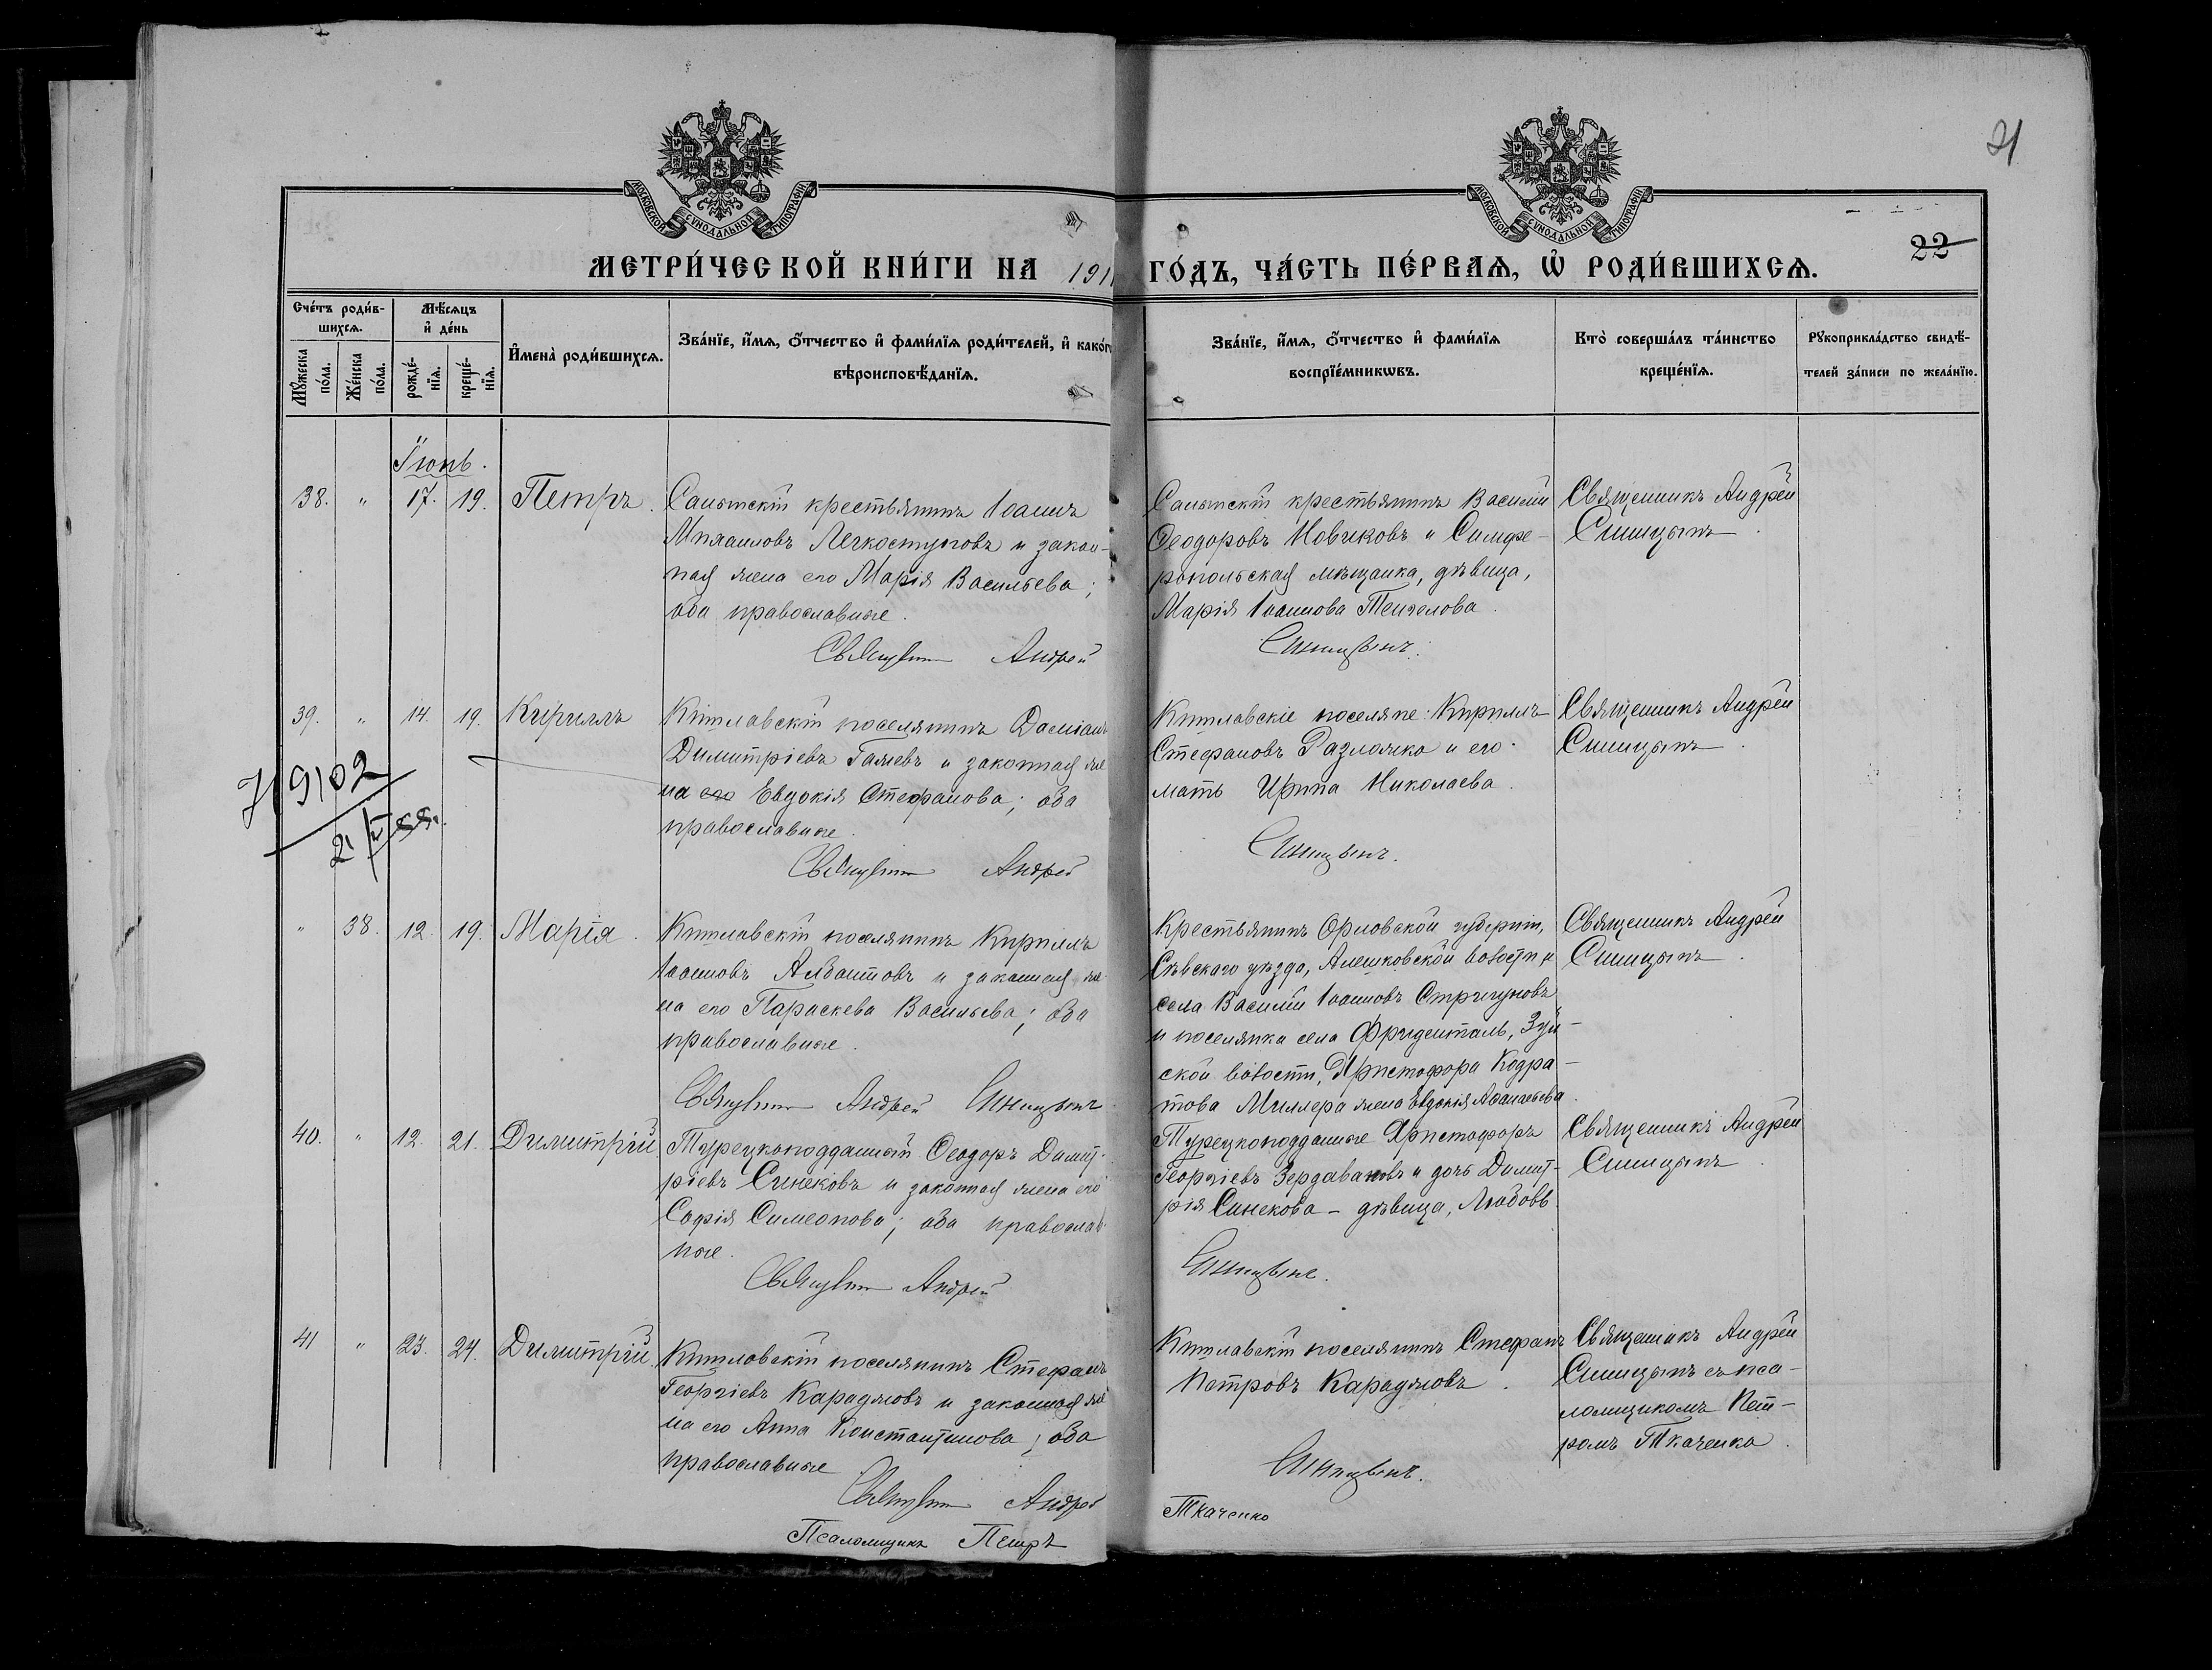 21
22
МОСКОВСКОЙ СУНОДАЛЬНОЙ ТИПОГРАФІИ
МОСКОВСКОЙ СУНОДАЛЬНОЙ ТИПОГРАФІИ
МЕТРИ́ЧЕСКОЙ КНИ́ГИ НА 191 ГО́ДЪ, ЧА́СТЬ ПЕ́РВАѦ, Ѡ҆ РОДИ́ВШИХСѦ.
Сче́тъ роди́в-
шихсѧ.
Мѣ́сѧцъ
и҆ де́нь
Мꙋ́жеска
по́ла.
Же́нска
по́ла.
рожде́-
нїѧ.
креще́-
нїѧ.
И҆мена̀ роди́вшихсѧ.
Зва́нїе, и҆́мѧ, ѻ҆́тчество и҆ фами́лїѧ роди́телей, и҆ како́гѡ
вѣроисповѣ́данїѧ.
Зва́нїе, и҆́мѧ, ѻ҆́тчество и҆ фами́лїѧ
воспрїе́мникѡвъ.
Кто̀ соверша́лъ та́инство
креще́нїѧ.
Рꙋкоприкла́дство свидѣ́-
телей за́писи по жела́нїю.
Іюнь.
38. " 17. 19. Петръ.
Саитскій крестьянинъ Іоаннъ
Михаиловъ Легкоступовъ и закон-
ная жена его Марія Васильева;
оба православные.
Священникъ Андрей
Саитскій крестьянинъ Василій
Ѳеодоровъ Новиковъ и Симфе-
ропольская мѣщанка, дѣвица,
Марія Іоаннова
Синицынъ.
Священникъ Андрей
Синицынъ.
39. " 14. 19. Кириллъ
Китлавскій поселянинъ Даміанъ
Димитріевъ Галяевъ и законная же
на его Евдокія Стефанова; оба
православные.
Священникъ Андрей
Китлавскіе поселяне: Кириллъ
Стефановъ Разложко и его
мать Ирина Николаева.
Синицынъ.
Священникъ Андрей
Синицынъ.
" 38. 12. 19. Марія.
Китлавскій поселянинъ Кириллъ
Іоанновъ Албантовъ и законная же
на его Параскева Васильева; оба
православные.
Священникъ Андрей Синицынъ
Крестьянинъ Орловской губерніи,
Сѣвскаго уѣзда, Алешковской волости и
села Василій Іоанновъ Стригуновъ
и поселянка села Фриденталь, Зуй-
ской волости, Христофора Кодра-
това Миллера жена Евдокія Аѳанасьева.
Священникъ Андрей
Синицынъ.
40. " 12. 21. Димитрій
Турецкоподданный Ѳеодоръ Димит-
ріевъ Синековъ и законная жена его
Софія Симеонова; оба православ
ные.
Священникъ Андрей
Турецкоподданные Христофоръ
Георгіевъ Зердавановъ и дочь Димит-
рія Синекова - дѣвица, Любовь.
Синицынъ.
Священникъ Андрей
Синицынъ.
41 " 23. 24. Димитрій.
Китлавскій поселянинъ Стефанъ
Георгіевъ Караджовъ и законная же
на его Анна Константинова; оба
православные
Священникъ Андрей
Псаломщикъ Петръ
Китлавскій поселянинъ Стефанъ
Петровъ Караджовъ.
Синицынъ.
Ткаченко
Священникъ Андрей
Синицынъ съ пса-
ломщикомъ Пет-
ромъ Ткаченко.